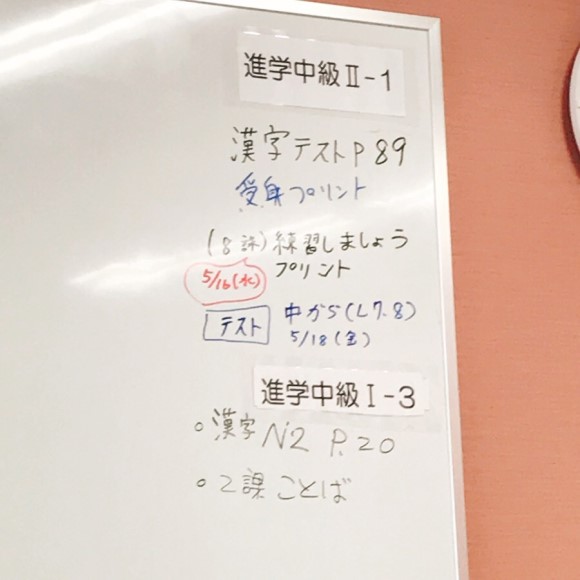 進学中級Ⅱ-1
漢字テストP89
受身プリント
(8課)練習しましょう
プリント
5/16(水)
テスト 中から(L7.8)
5/18(金)
進学中級Ⅰ-3
○漢字 N2 P.20
○2課 ことば